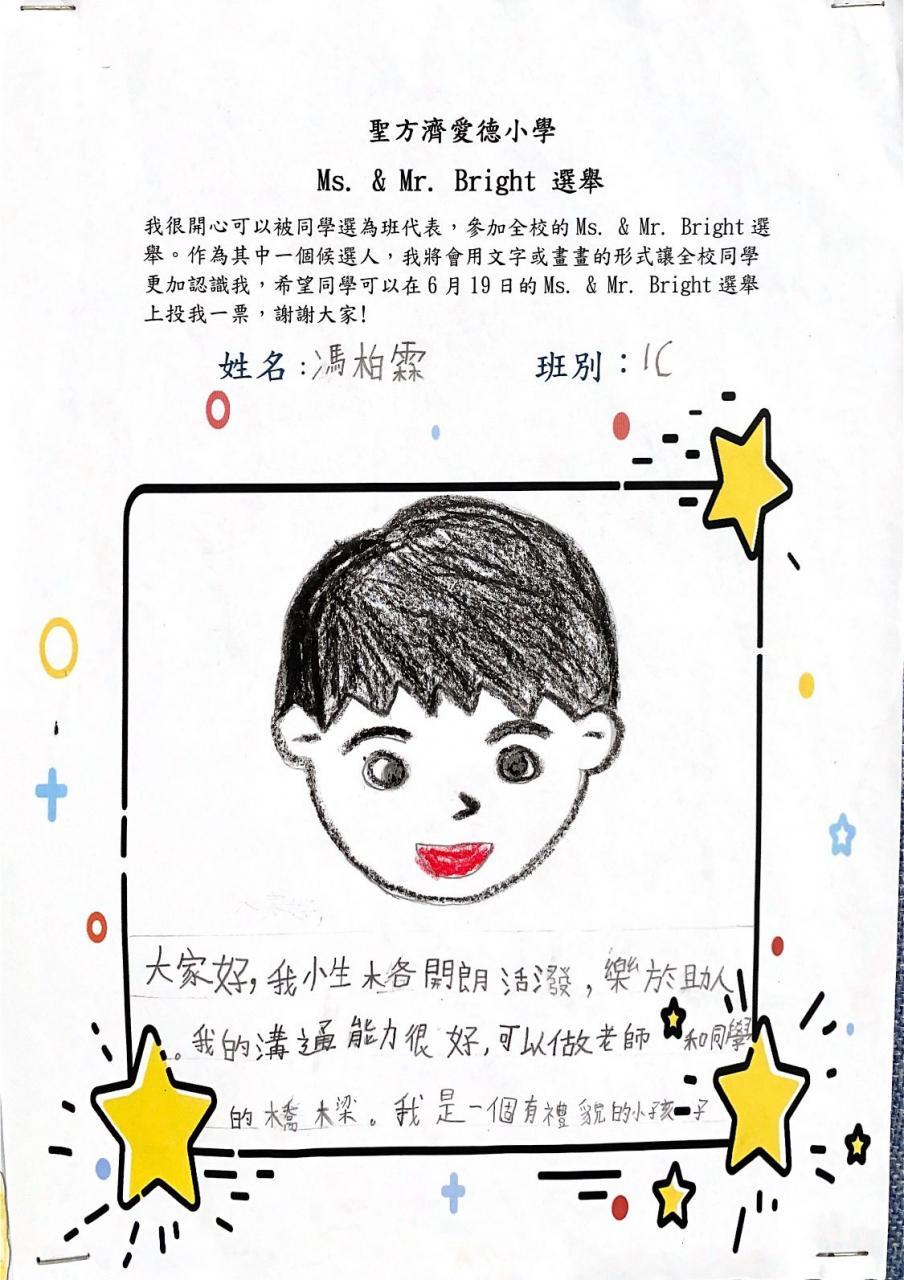 聖方濟愛德小學
Ms. & Mr. Bright 選舉
我很開心可以被同學選為班代表，參加全校的Ms. & Mr. Bright選
舉。作為其中一個候選人，我將會用文字或畫畫的形式讓全校同學
更加認識我，希望同學可以在6月19日的Ms. & Mr. Bright選舉
上投我一票，謝謝大家!
姓名:馮柏霖 班別：1C
大家好，我小生木各開朗活潑，樂於助人
。我的溝通能力很好，可以做老師和同學
的橋樑。我是一個有禮貌的小孩子